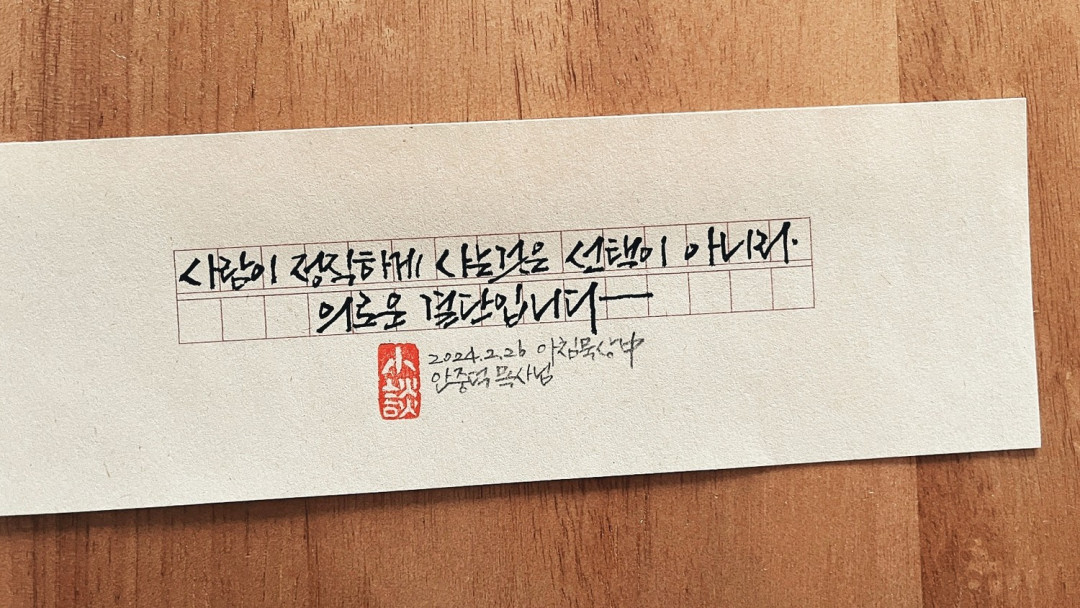 사람이 정직하게 사는것은 선택이 아니라.
의로운 결단입니다—
小談
2024.2.26 아침묵상中
안중덕 목사님